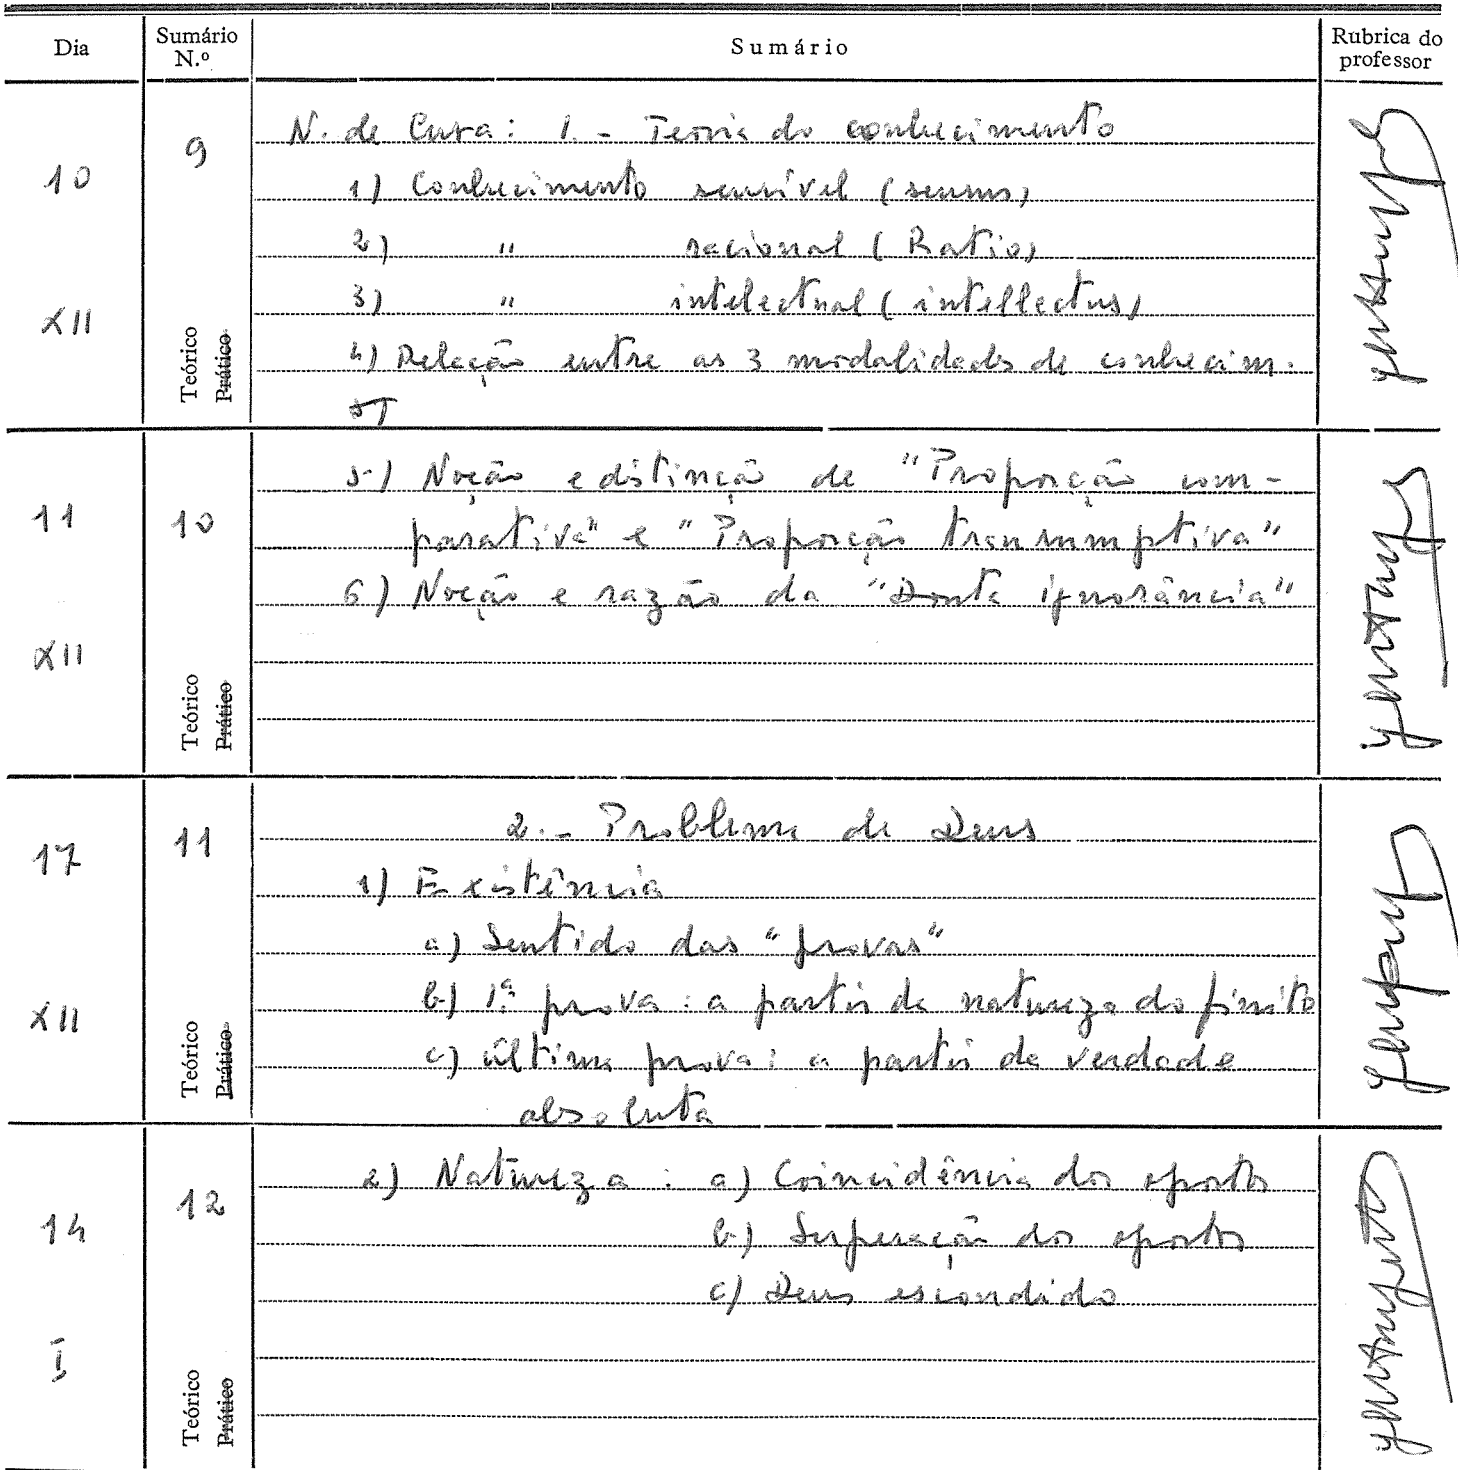 Dia Sumário N.º Sumário Rubrica do professor
10 XII 9 Teórico Prático
N. de Cusa: 1. - Teoria do conhecimento
1) Conhecimento sensível (sensus)
2) " racional (Ratio)
3) " intelectual (intellectus)
4) Relação entre as 3 modalidades de conhecim.
5)
11 XII 10 Teórico Prático
5) Noção e distinção de "Proporção com-
parativa" e "Proporção transsumptiva"
6) Noção e razão da "Douta ignorância"
17 XII 11 Teórico Prático
2. - Problema de Deus
1) Existência
a) Sentido das "provas"
b) 1ª prova: a partir da natureza do finito
c) última prova: a partir da verdade
absoluta
14 I 12 Teórico Prático
2) Natureza: a) Coincidência dos opostos
b) Superação dos opostos
c) Deus escondido